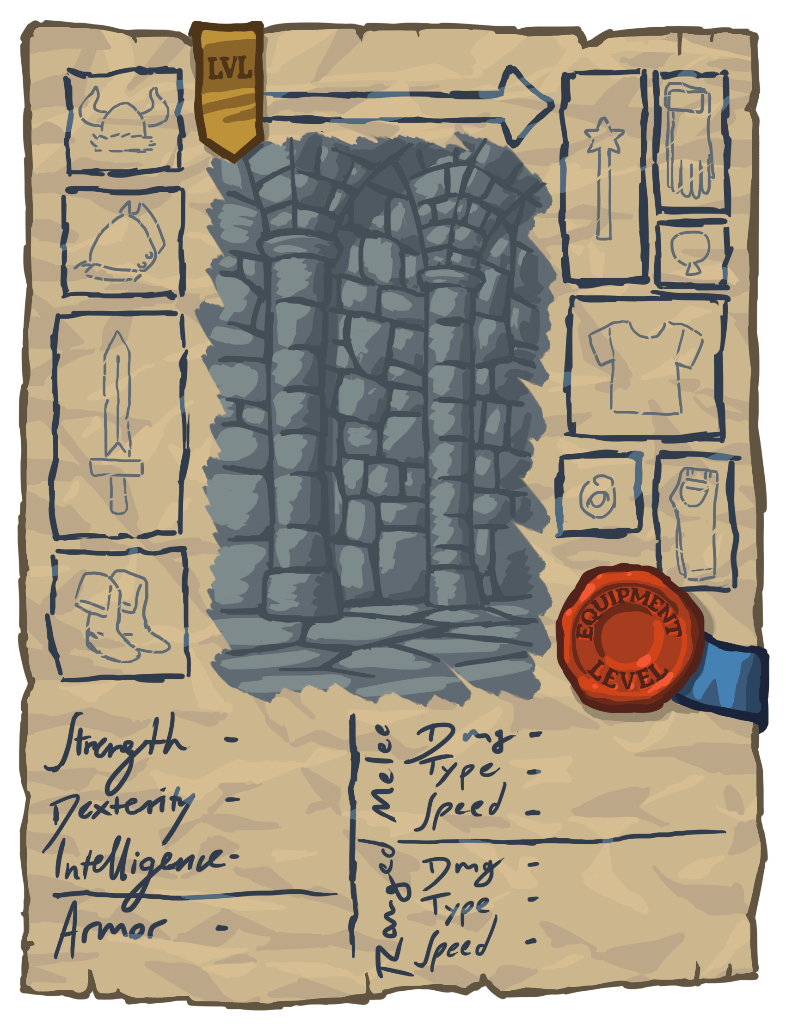 LVL
EQUIPMENT
LEVEL
Strength -
Dexterity -
Intelligence -
Armor -
Melee
Dmg -
Type -
Speed -
Ranged
Dmg -
Type -
Speed -